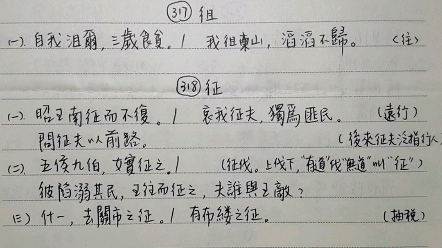 317 徂
(一) 自我徂爾，三歲食貧。/ 我徂東山，滔滔不歸。 (往)
318 征
(一) 昭王南征而不復。/ 哀我征夫，獨爲匪民。 (遠行)
問征夫以前路。 (後來征夫泛指行人)
(二) 五侯九伯，女實征之。/ (征伐。上伐下，"有道"伐"無道"叫"征")
彼陷溺其民，王往而征之，夫誰與王敵？
(三) 什一，去關市之征。/ 有布縷之征。 (抽稅)